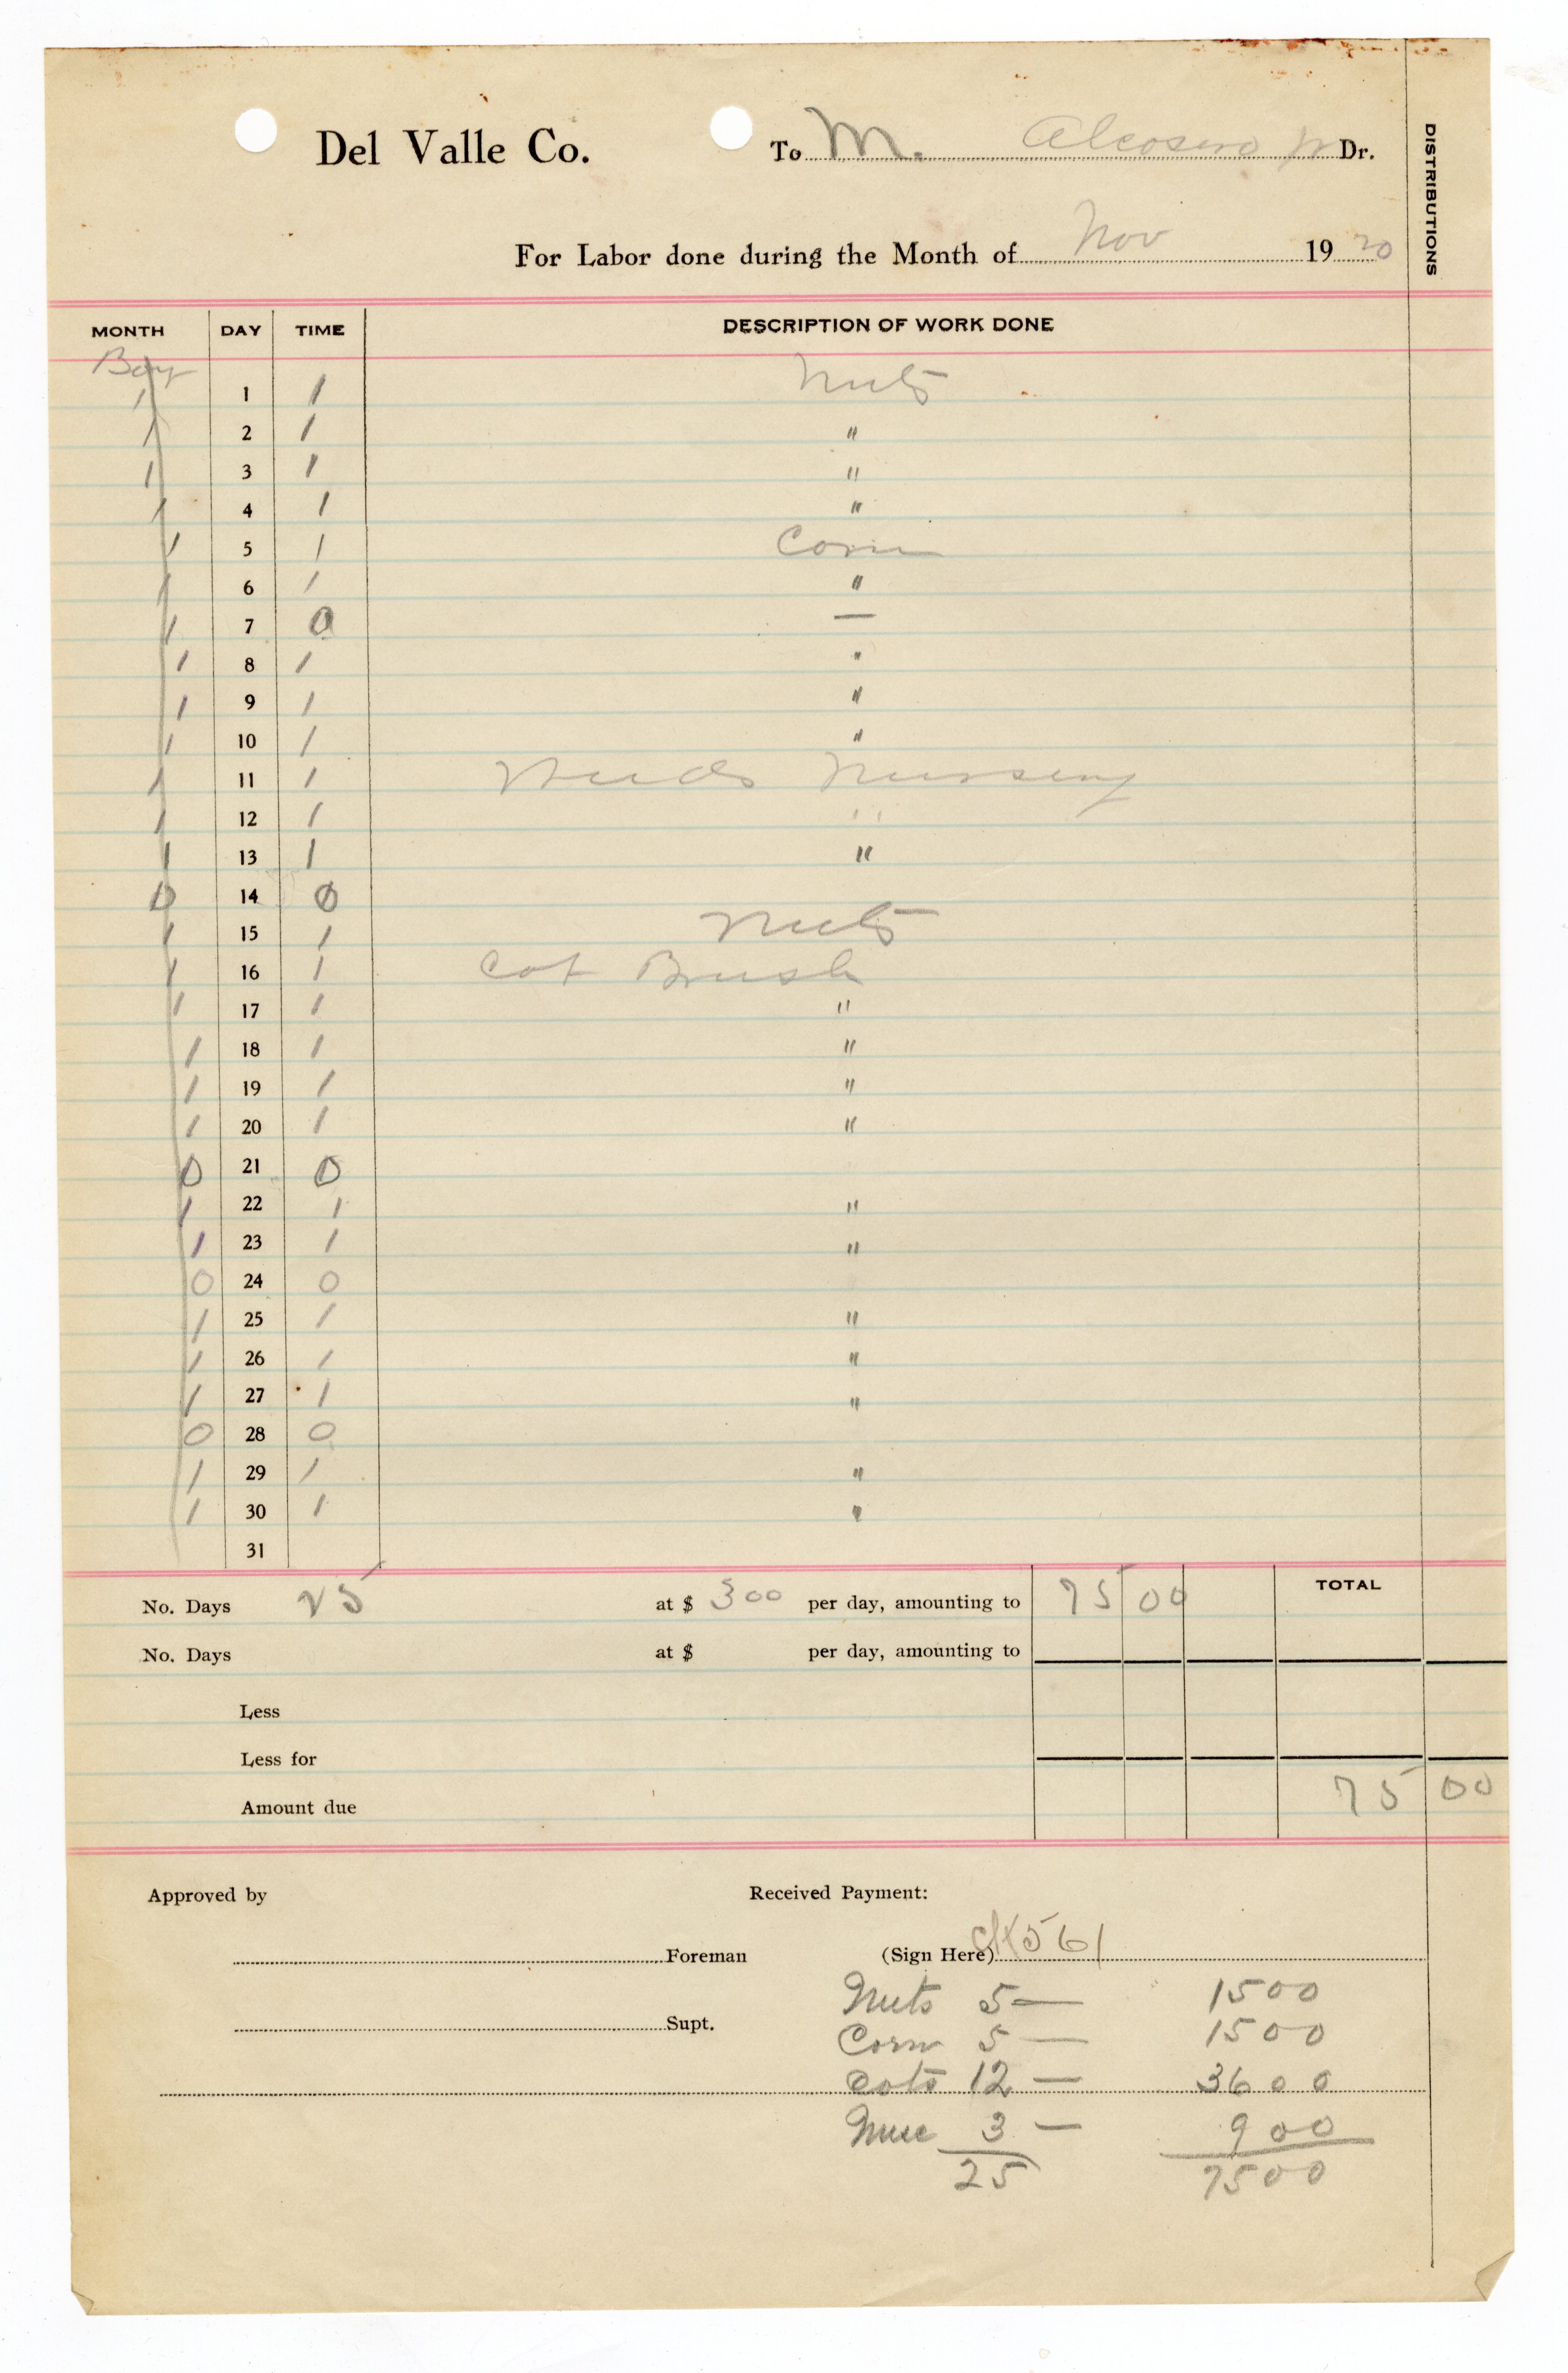 Del Valle Co. To M. Alcosero Jr Dr.
DISTRIBUTIONS
For Labor done during the Month of Nov 1920
MONTH DAY TIME DESCRIPTION OF WORK DONE
Boy
1 1 1 Nuts
1 2 1 "
1 3 1 "
1 4 1 "
1 5 1 Corn
1 6 1 "
1 7 0 —
1 8 1 "
1 9 1 "
1 10 1 "
1 11 1 Nursery
1 12 1 "
1 13 1 "
0 14 0
1 15 1 Nuts
1 16 1 Cot Brush
1 17 1 "
1 18 1 "
1 19 1 "
1 20 1 "
0 21 0
1 22 1 "
1 23 1 "
0 24 0
1 25 1 "
1 26 1 "
1 27 1 "
0 28 0
1 29 1 "
1 30 1 "
31
TOTAL
No. Days 25 at $ 300 per day, amounting to 75 00
No. Days at $ per day, amounting to
Less
Less for
Amount due 75 00
Approved by Received Payment:
Foreman (Sign Here) ck 561
Nuts 5 — 1500
Supt.
Corn 5 — 1500
Cots 12 — 3600
3 — 900
25 7500